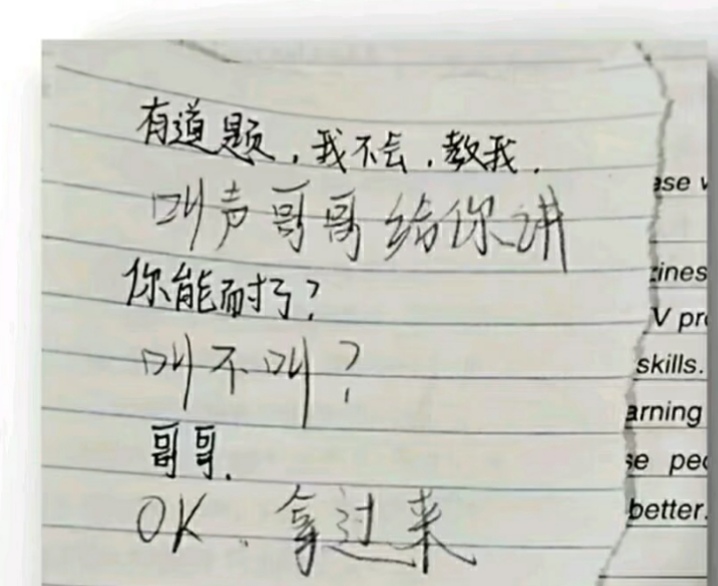 有道题，我不会，教我．
叫声哥哥给你讲
你能耐了？
叫不叫？
哥哥．
OK．拿过来
skills.
better.